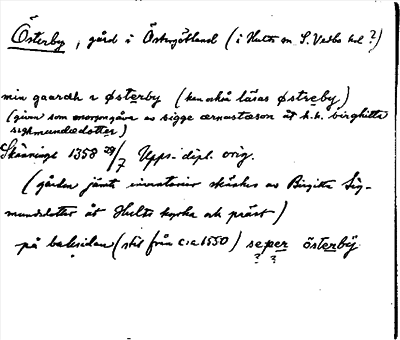 Österby, gård i Östergötland (i Hults sn. S. Vedbo hd ?)
min gaardh i østerby (kan också läsas østreby)
(given som morgongåva av sigge ærnastæson åt h. h. birghitta
sighmundædotter)
Skänninge 1358 29/7 Upps. dipl. orig.
(gården jämt inventarier skänkes av Birgitta Sig-
mundsdotter åt Hults kyrka och präst)
på baksidan (stil från c:a 1550) seper österbÿ
? ?